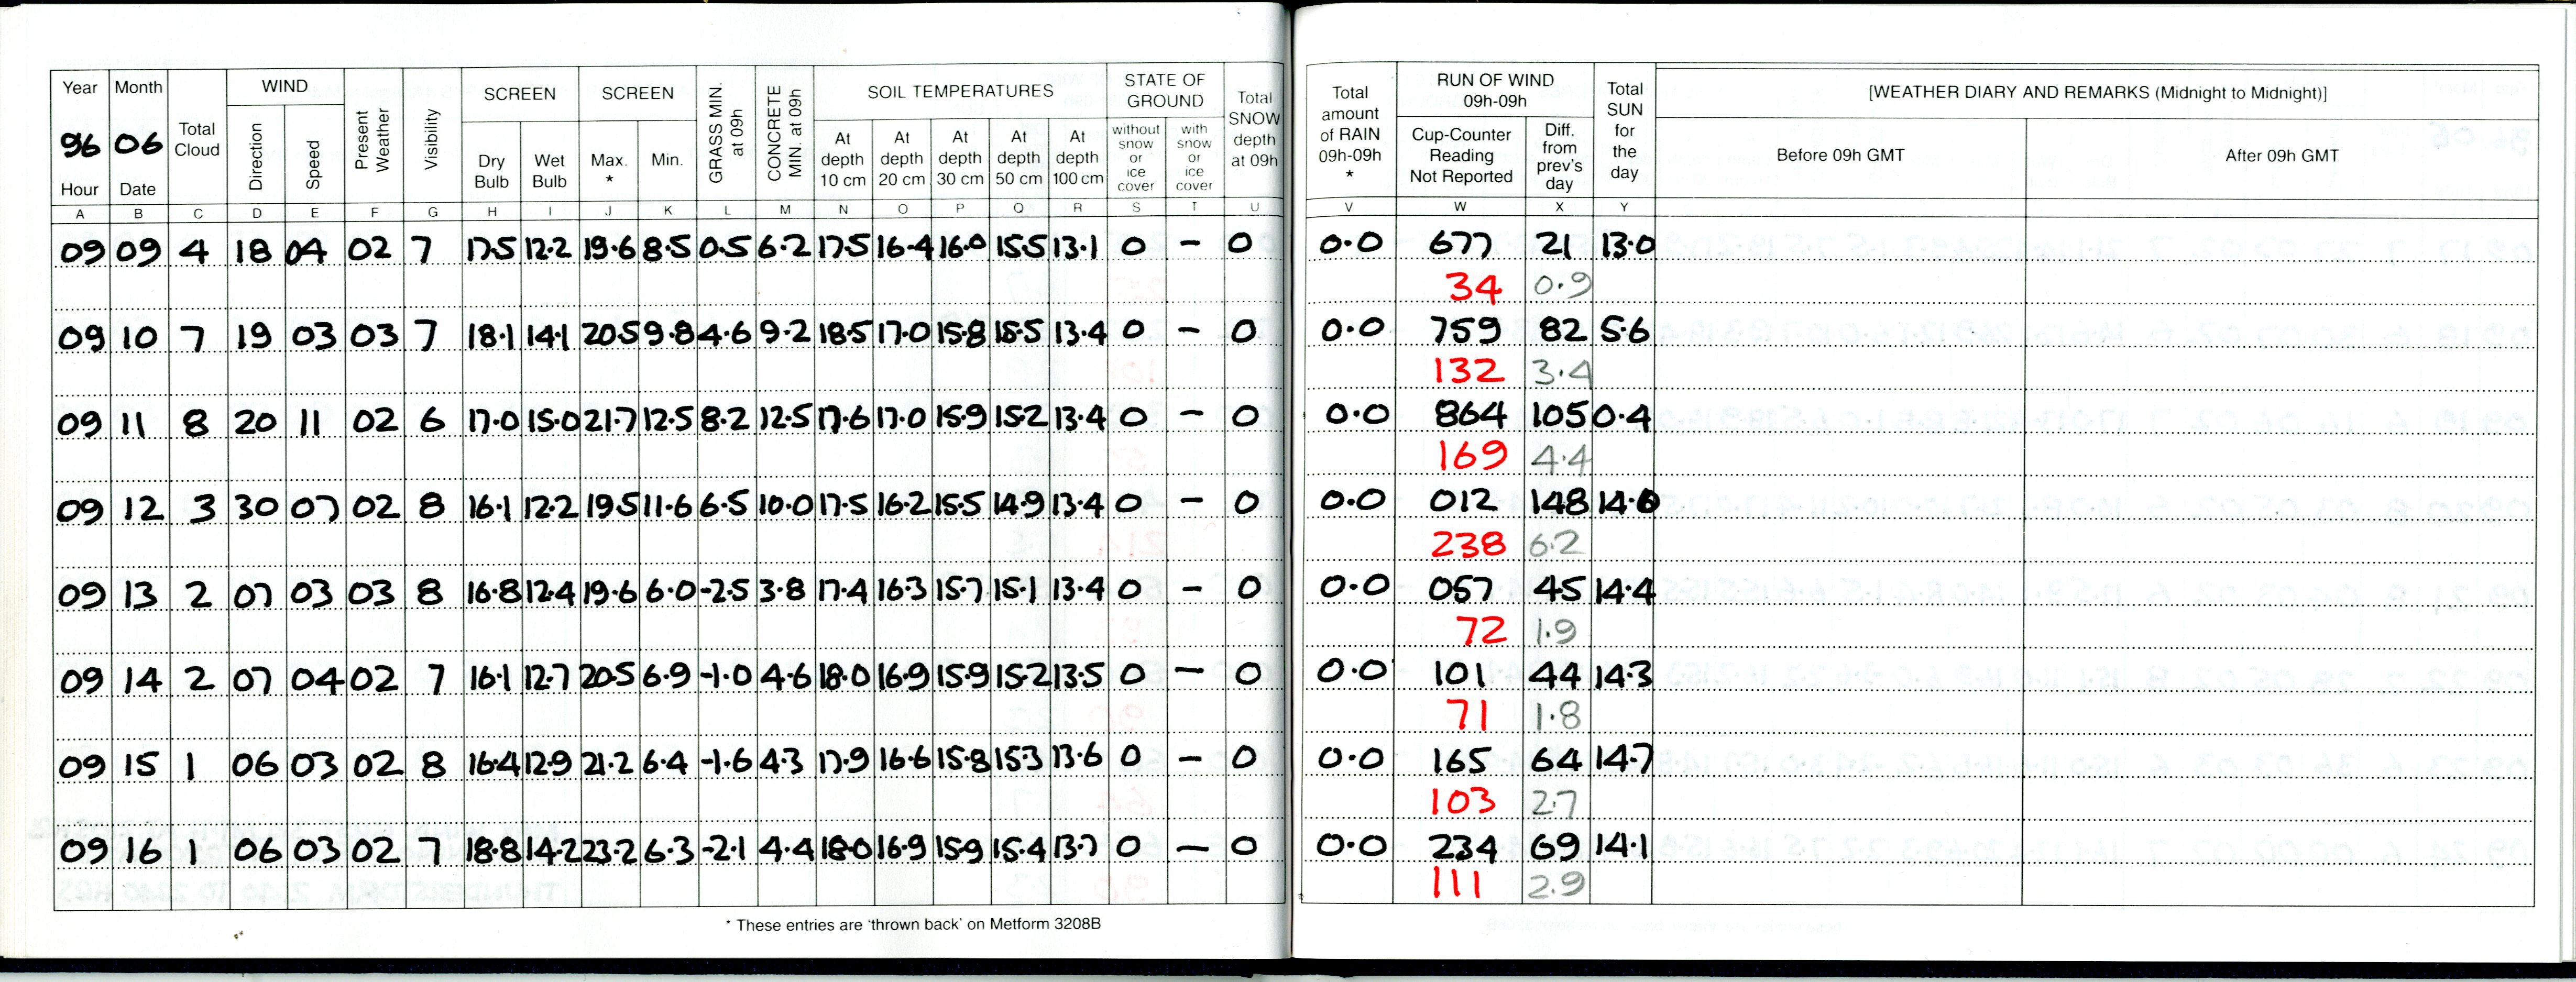 Year Month WIND SCREEN SCREEN SOIL TEMPERATURES STATE OF GROUND RUN OF WIND 09h-09h [WEATHER DIARY AND REMARKS (Midnight to Midnight)]
96 06 Total Cloud Direction Speed Present Weather Visibility Dry Bulb Wet Bulb Max. * Min. GRASS MIN. at 09h CONCRETE MIN. at 09h At depth 10 cm At depth 20 cm At depth 30 cm At depth 50 cm At depth 100 cm without snow or ice cover with snow or ice cover Total SNOW depth at 09h Total amount of RAIN 09h-09h * Cup-Counter Reading Not Reported Diff. from prev's day Total SUN for the day Before 09h GMT After 09h GMT
Hour Date
A B C D E F G H I J K L M N O P Q R S T U V W X Y
09 09 4 18 04 02 7 17.5 12.2 19.6 8.5 0.5 6.2 17.5 16.4 16.0 15.5 13.1 0 - 0 0.0 677 21 13.0
34 0.9
09 10 7 19 03 03 7 18.1 14.1 20.5 9.8 4.6 9.2 18.5 17.0 15.8 15.5 13.4 0 - 0 0.0 759 82 5.6
132 3.4
09 11 8 20 11 02 6 17.0 15.0 21.7 12.5 8.2 12.5 17.6 17.0 15.9 15.2 13.4 0 - 0 0.0 864 105 0.4
169 4.4
09 12 3 30 07 02 8 16.1 12.2 19.5 11.6 6.5 10.0 17.5 16.2 15.5 14.9 13.4 0 - 0 0.0 012 148
238 6.2
09 13 2 07 03 03 8 16.8 12.4 19.6 6.0 -2.5 3.8 17.4 16.3 15.7 15.1 13.4 0 - 0 0.0 057 45 14.4
72 1.9
09 14 2 07 04 02 7 16.1 12.7 20.5 6.9 -1.0 4.6 18.0 16.9 15.9 15.2 13.5 0 - 0 0.0 101 44 14.3
71 1.8
09 15 1 06 03 02 8 16.4 12.9 21.2 6.4 -1.6 4.3 17.9 16.6 15.8 15.3 13.6 0 - 0 0.0 165 64 14.7
103 2.7
09 16 1 06 03 02 7 18.8 14.2 23.2 6.3 -2.1 4.4 18.0 16.9 15.9 15.4 13.7 0 - 0 0.0 234 69 14.1
111 2.9
* These entries are 'thrown back' on Metform 3208B